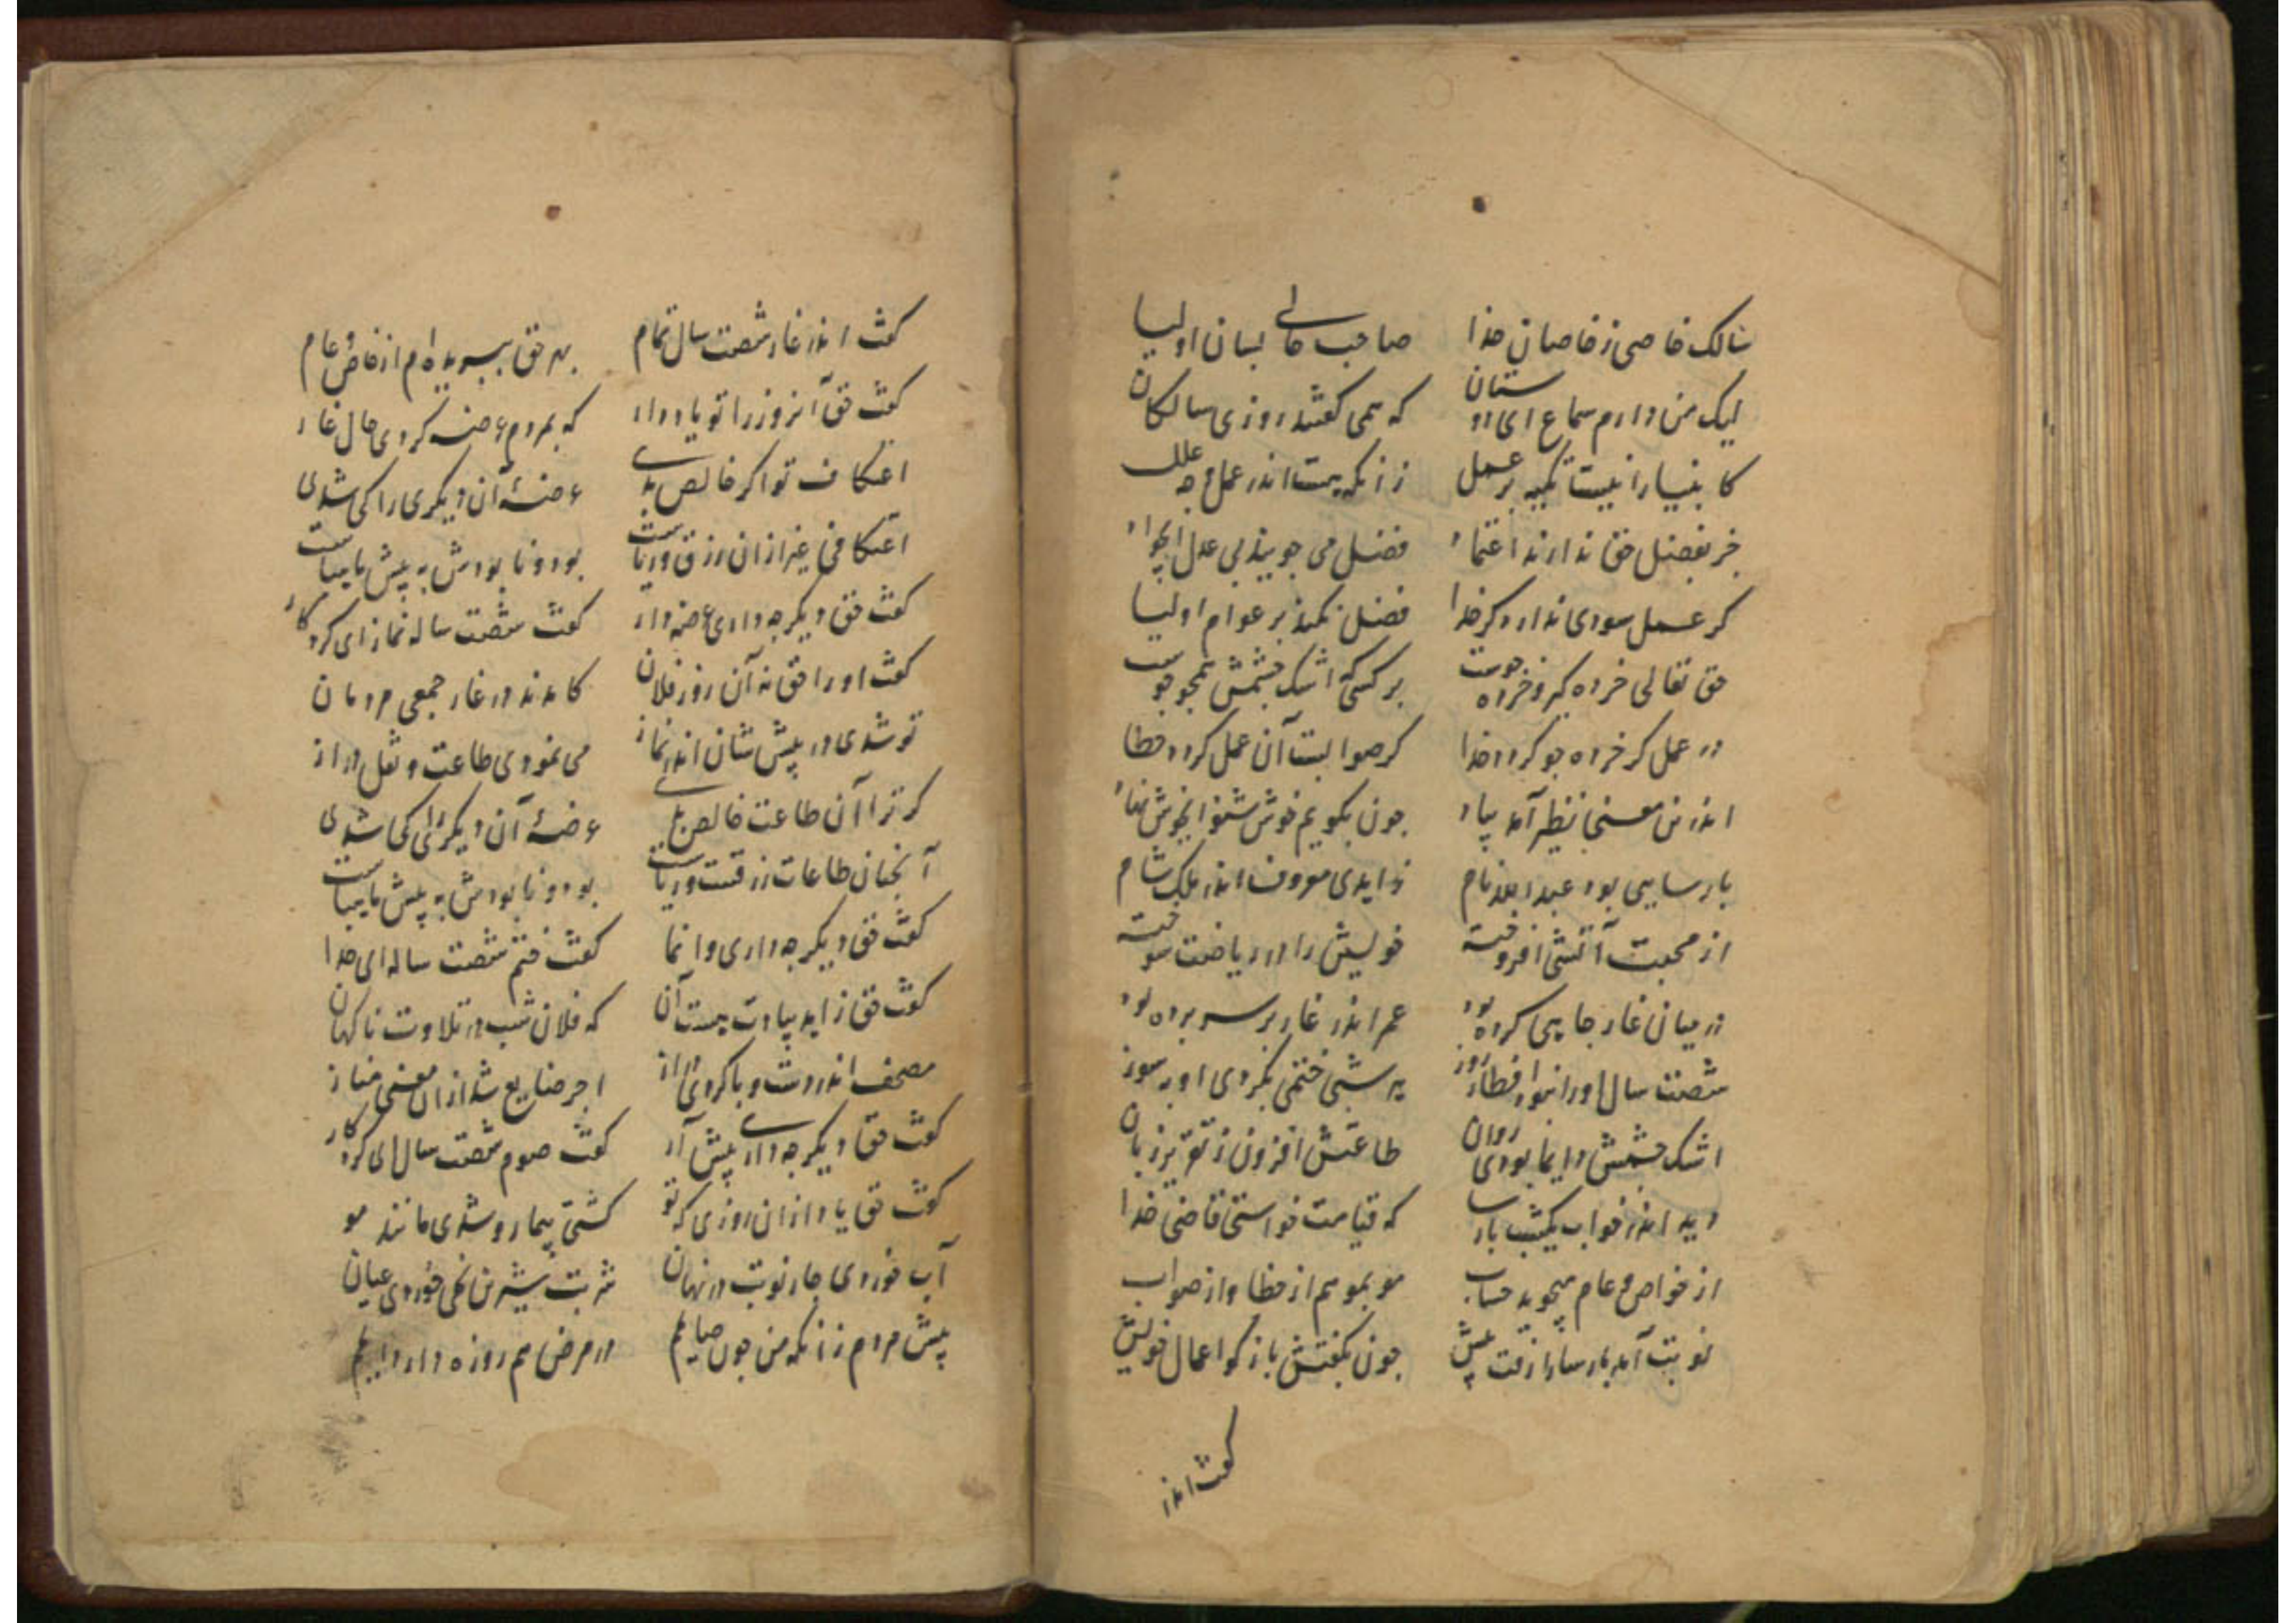 سالک خاصی ز خاصان خدا صاحب حالی لسان اولیا
لیک من دارم سماع ای دوستان که همی گفتند روزی سالکان
کانبیا را نیست تکیه بر عمل زانکه هست اندر عمل جمله علل
جز بفضل حق ندارند اعتماد فضل می جویند بی عدل
کر عمل سودی ندارد کر خدا فضل نکند بر عوام اولیا
حق تعالی خرده گیر و خرده جوست بر کسی که اشک چشمش همچو جوست
در عمل کر خرده جو کردد خدا کر صوابست آن عمل کردد خطا
اندرین معنی نظیر آمد بیاد چون بگویم خوش شنو ای خوش نهاد
پارسایی بود عبدالله نام زاهدی معروف اندر ملک شام
از محبت آتشی افروخته خویش را در ریاضت سوخته
در میان غار جایی کرده بود عمر اندر غار بر سر برده بود
شصت سال او را نبود افطار روز هر شبی ختمی بکردی او بسوز
اشک چشمش دایما بودی روان طاعتش افزون ز تقریر زبان
دید اندر خواب یکشب پارسا که قیامت خواستی قاضی خدا
از خواص و عام میجوید حساب مو بمو هم از خطا و از صواب
نوبت آمد پارسا را رفت پیش چون بگفتش بازگو اعمال خویش
گفت اندر
گفت اندر غار شصت سال تمام بهر حق ببریده ام از خاص و عام
گفت حق آنروز را تو یاد دار که بمردم عرضه کردی حال غار
اعتکاف تو اکر خالص بدی عرضهٔ آن دیگری را کی شدی
اعتکافی غیر ازان رزق و ریاست بود و نابودش به پیش ما هباست
گفت حق دیگر چه داری عرضه دار گفت شصت ساله نماز ای کردگار
گفت او را حق نه آن روز فلان کامدند در غار جمعی مردمان
تو شدی در پیش شان اندر نماز می نمودی طاعت و نفل دراز
کر ترا آن طاعت خالص بدی عرضهٔ آن دیگری را کی شدی
آنچنان طاعات زرقست و ریاست بود و نابودش به پیش ما هباست
گفت حق دیگر چه داری وا نما گفت ختم شصت ساله ای خدا
گفت حق زاهد بیادت هست آن که فلان شب در تلاوت ناگهان
مصحف اندر دست و پا کردی دراز اجر ضایع شد ازان معنی
گفت حق دیگر چه داری پیش آر گفت صوم شصت سال ای کردگار
گفت حق یاد از آن روزی که تو گشتی بیمار و شدی مانند مو
آب خوردی چار نوبت در نهان شربت شیرین خوردی عیان
پیش مردم زانکه من چون صایم در مرض هم روزه دارد دایم